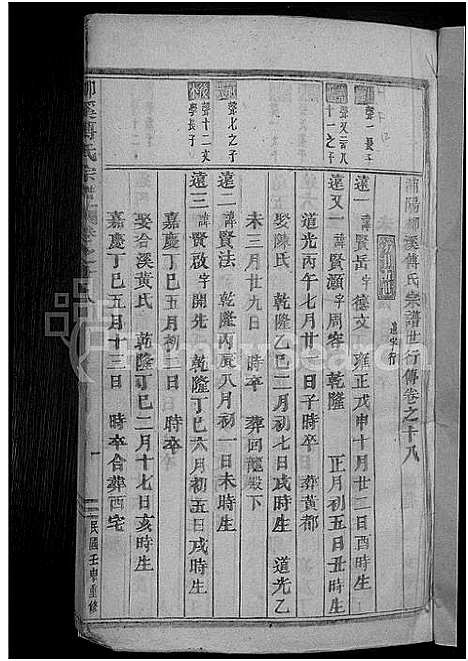 浦陽柳溪傅氏宗譜世行傳卷之十八
遠字行
聲一長子
遠一 諱賢岳 字德文 雍正戊申十月廿二日酉時生
聲又云八
十一之子
遠又一 諱賢灝 字周容 乾隆 正月初五日丑時生
道光丙午七月廿一日子時卒 葬黃都
娶陳氏 乾隆乙巳二月初七日戌時生 道光乙
未三月廿九日 時卒 葬回龍殿下
聲七之子
遠二 諱賢法 乾隆丙辰八月初一日未時生
聲十二文
學長子
遠三 諱賢啟 字開先 乾隆丁巳六月初五日戌時生
嘉慶丁巳五月初二日 時卒
娶合溪黃氏 乾隆丁巳二月十七日亥時生
嘉慶丁巳五月十三日 時卒合葬西宅
柳溪傅氏宗譜
卷之十八
一
民國壬申重修